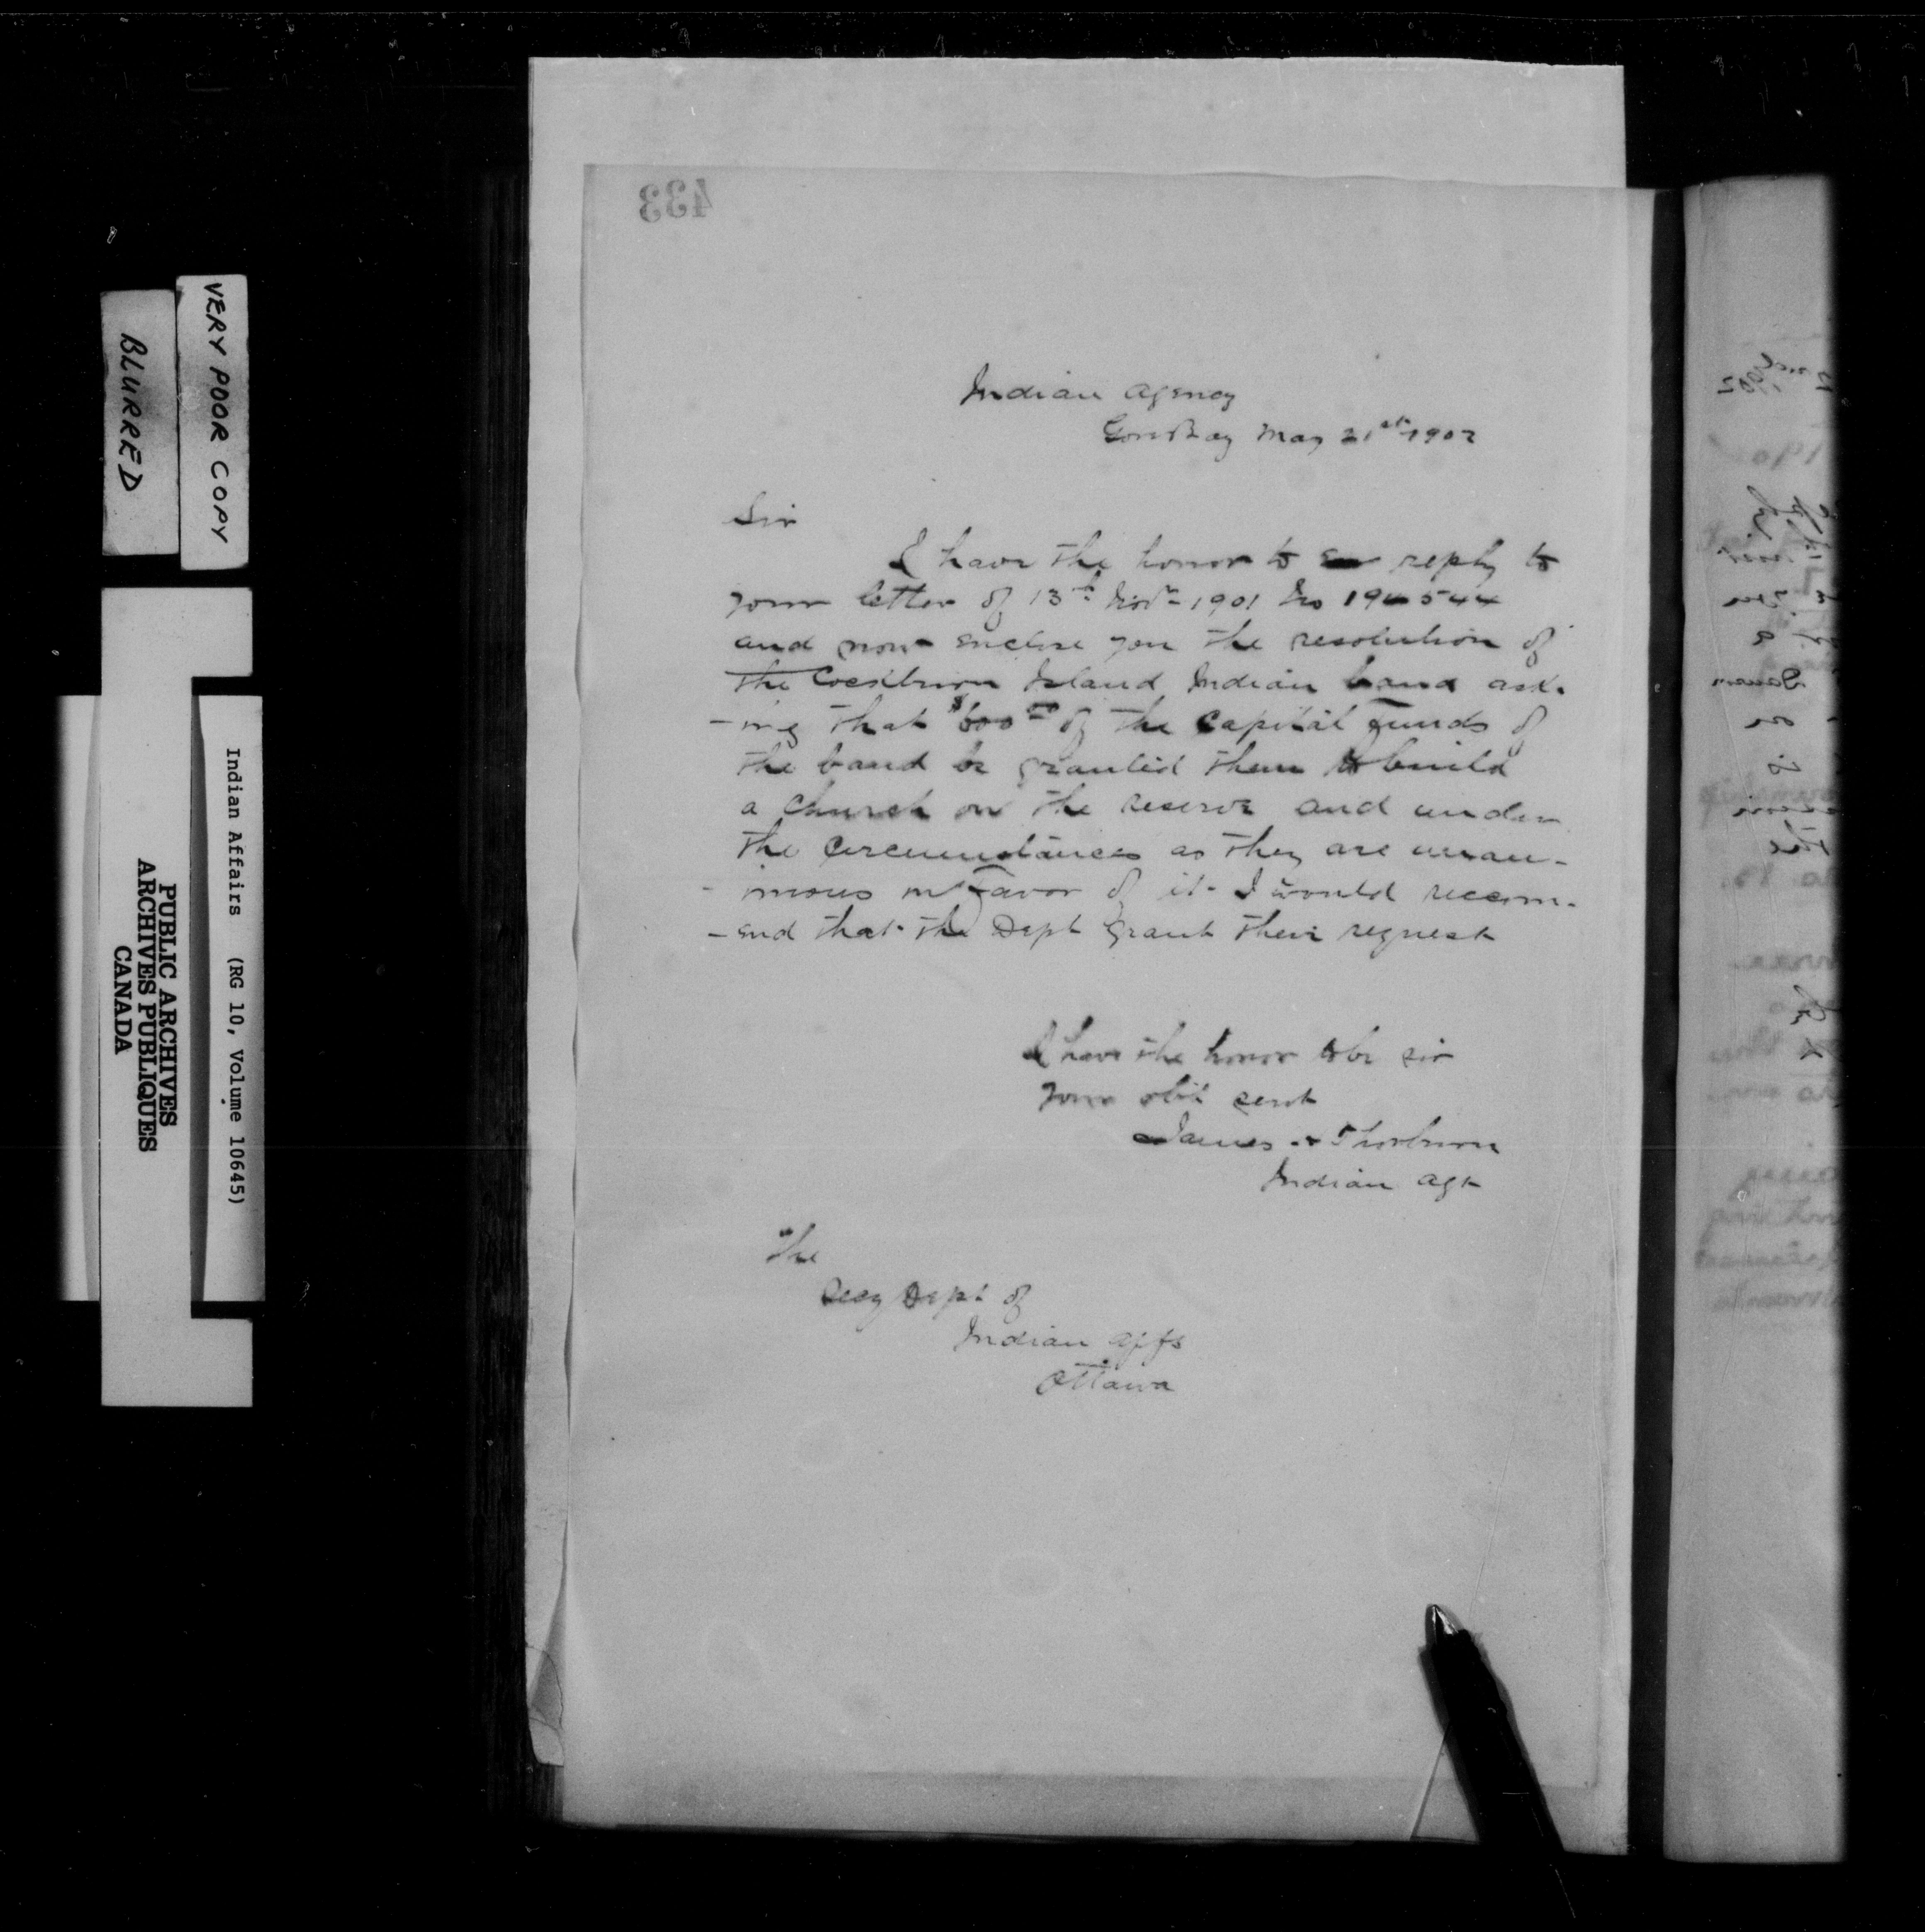 433
Indian Agency
Gore Bay May 21st 1902
Sir
I have the honor to reply to
your letter of 13th Novr 1901 No 194544
and now enclose you the resolution of
the Cockburn Island Indian band ask-
-ing that $600 00 of the Capital Funds of
the band be granted them to build
a Church on the reserve and under
the Circumstances as they are unan-
-imous in Favor of it I would recom-
-end that the Dept Grant their request
I have the honor to be sir
your obt servt
James Thorburn
Indian Agt
The
Secy Dept of
Indian Affs
Ottawa
VERY POOR COPY
BLURRED
Indian Affairs (RG 10, Volume 10645)
PUBLIC ARCHIVES
ARCHIVES PUBLIQUES
CANADA